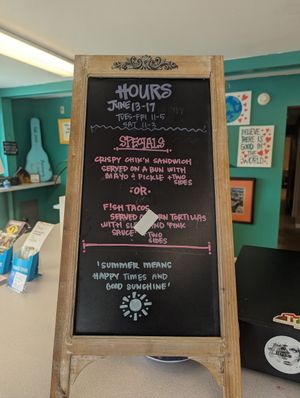 HOURS
JUNE 13-17
TUES-FRI 11-5
SAT 11-3
SPECIALS
CRISPY CHIK'N SANDWICH
SERVED ON A BUN WITH
MAYO & PICKLE + TWO
SIDES
-OR-
F!SH TACOS
SERVED CORN TORTILLAS
WITH AND PINK
SAUCE + TWO
SIDES
'SUMMER MEANS
HAPPY TIMES AND
GOOD SUNSHINE'
I BELIEVE
THERE IS
GOOD IN
THE
WORLD